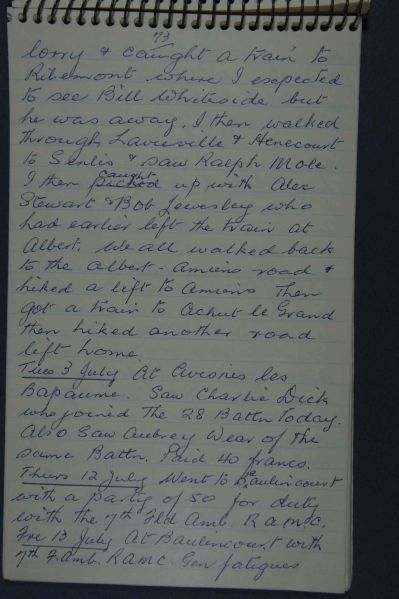 73
lorry & caught a train to
Ribemont where I expected
to see Bill Whiteside but
he was away. I then walked
through Lavieville & Henecourt
to Senlis & saw Ralph Mole.
I then caught up with Alex
Stewart & Bob Lewesley who
had earlier left the train at
Albert. We all walked back
to the Albert - Amiens road &
hiked a lift to Amiens Then
got a train to Achiet le Grand
then hiked another road
lift home.
Tues 3 July At Avesnes les
Bapaume. Saw Charlie Dick
who joined the 28 Battn today.
Also saw Aubrey Wear of the
same Battn. Paid 40 francs.
Thurs 12 July Went to Baulincourt
with a party of 50 for duty
with the 7th Fld Amb. R.A.M.C.
Fri 13 July At Baulincourt with
7th F. Amb. RAMC. Gen fatigues